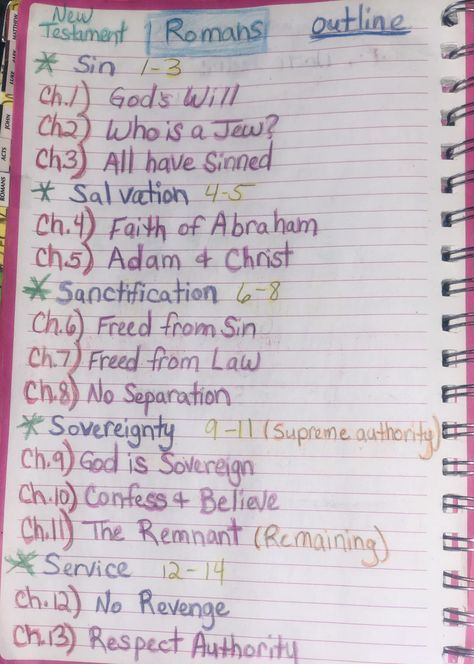 New
Testament Romans outline
* Sin 1-3
Ch.1) God's Will
Ch2) Who is a Jew?
Ch3) All have Sinned
* Salvation 4-5
Ch.4) Faith of Abraham
Ch.5) Adam + Christ
* Sanctification 6-8
Ch.6) Freed from Sin
Ch.7) Freed from Law
Ch.8) No Separation
* Sovereignty 9-11 (Supreme authority)
Ch.9) God is Sovereign
Ch.10) Confess + Believe
Ch.11) The Remnant (Remaining)
* Service 12-14
Ch.12) No Revenge
Ch.13) Respect Authority
MATTHEW
MARK
LUKE
JOHN
ACTS
ROMANS